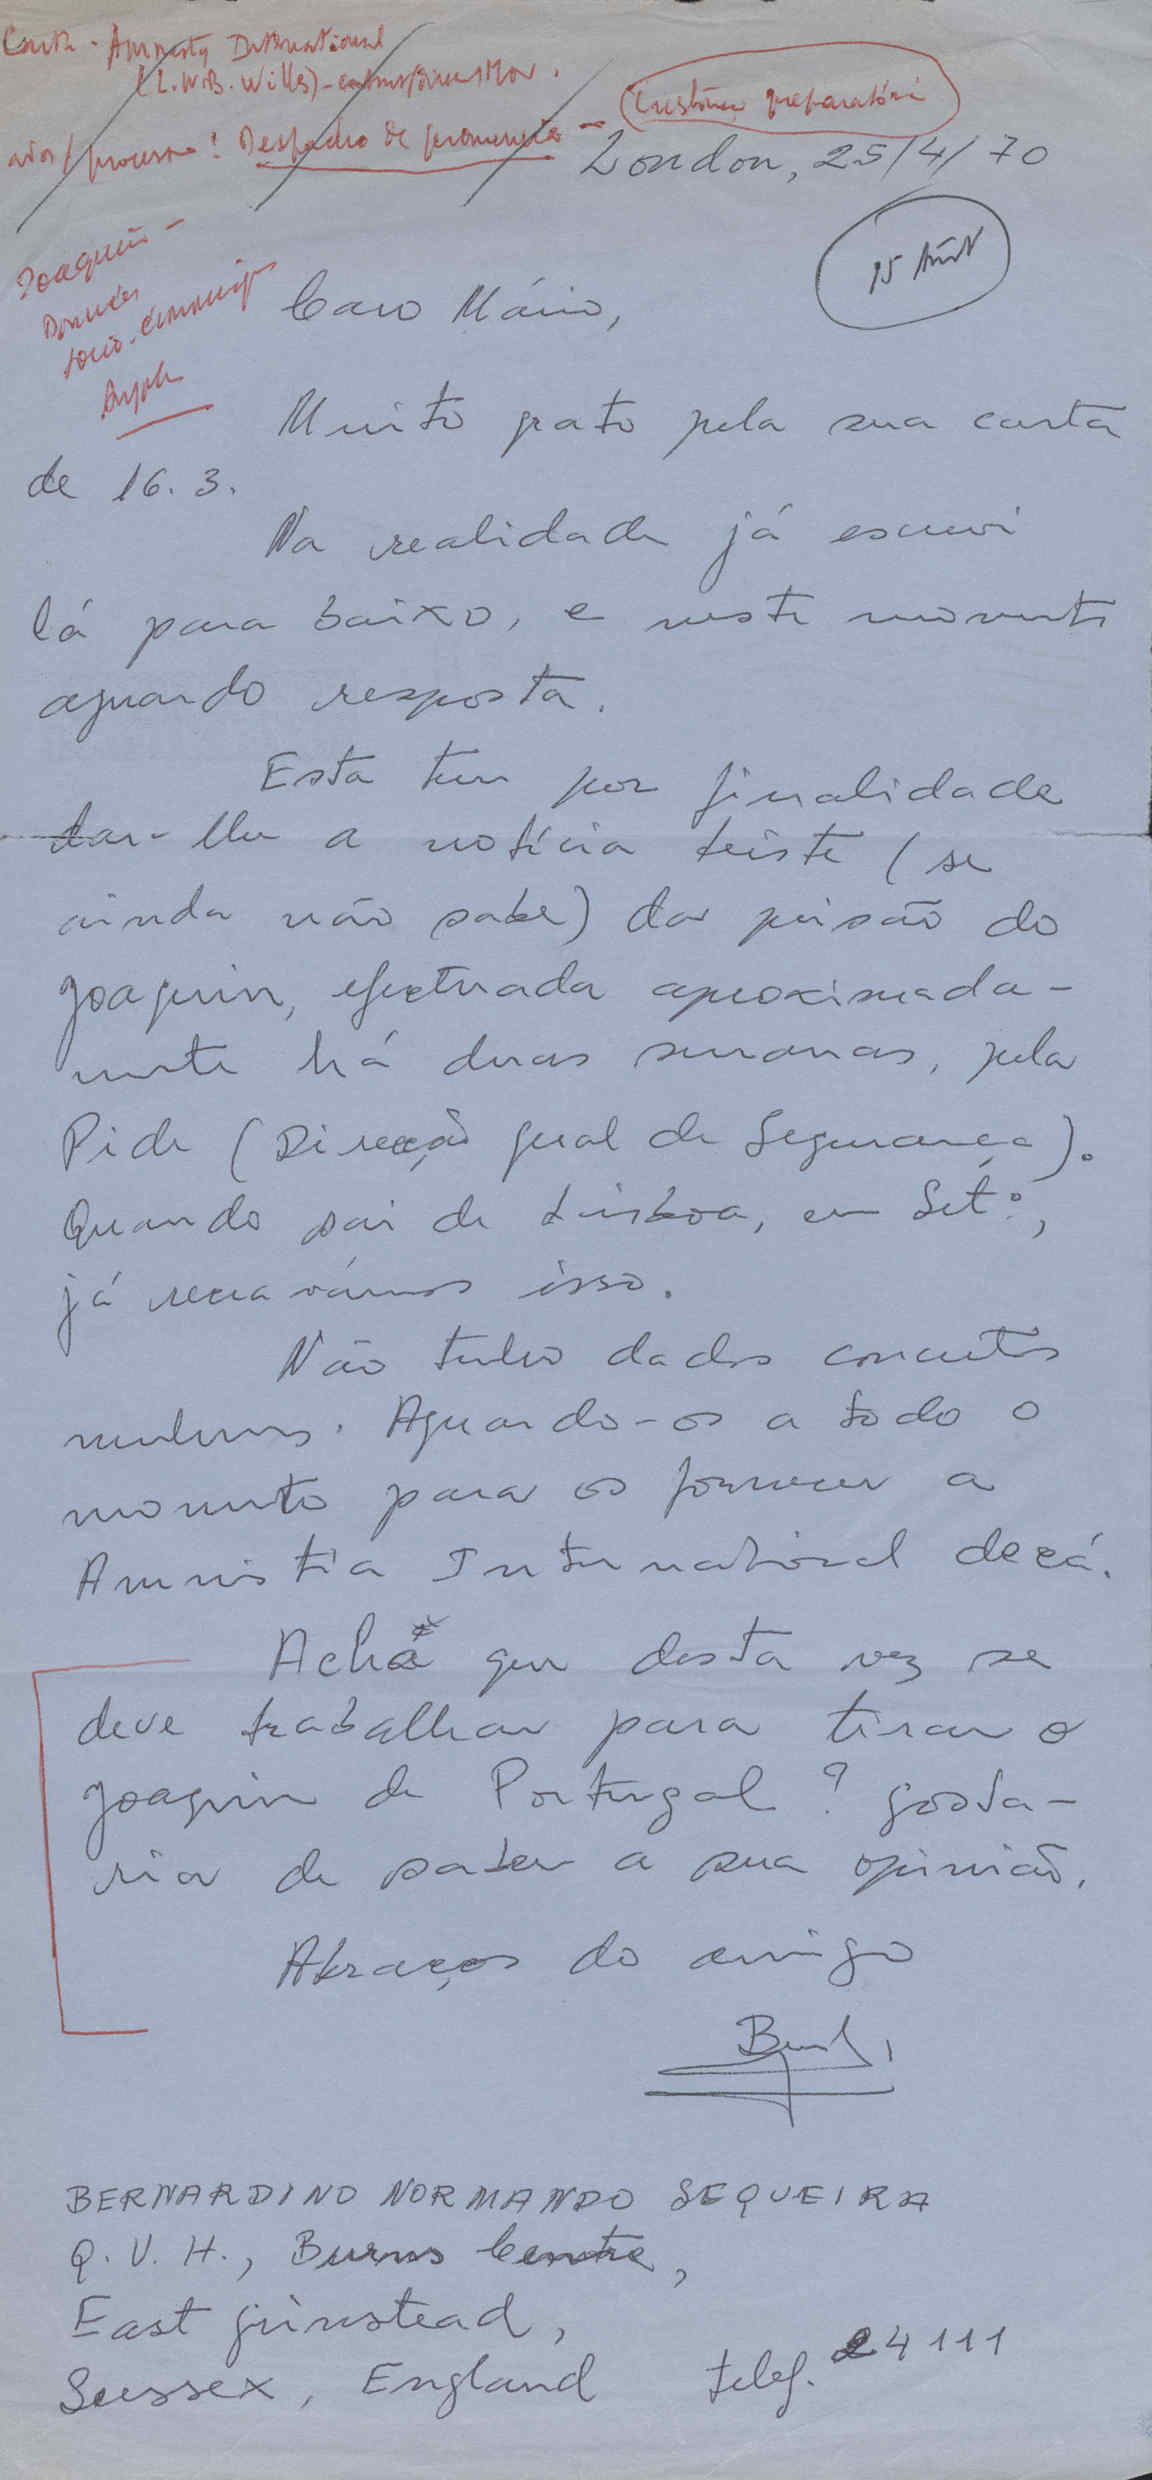 Carta - Amnesty International
(L. W. B. Wills) -
processo! Despacho de pronuncia - Instrução preparatória
London, 25/4/70
Joaquim -
socio-
Angola
Caro Mário,
Muito grato pela sua carta
de 16. 3.
Na realidade já escrevi
lá para baixo, e neste momento
aguardo resposta.
Esta tem por finalidade
dar-lhe a notícia triste (se
ainda não sabe) da prisão do
Joaquim, efectuada aproximada-
mente há duas semanas, pela
Pide (Direcção geral de Segurança).
Quando sai de Lisboa, em Setº,
já receavamos isso.
Não tenho dados concretos
nenhuns. Aguardo-os a todo o
momento para os fornecer a
Amnistia International de cá.
Acha que desta vez se
deve trabalhar para tirar o
Joaquim de Portugal? Gosta-
ria de saber a sua opinião.
Abraços do amigo
BERNARDINO NORMANDO SEQUEIRA
Q. V. H., Burns Centre,
East Grinstead,
Sussex, England telef. 24111